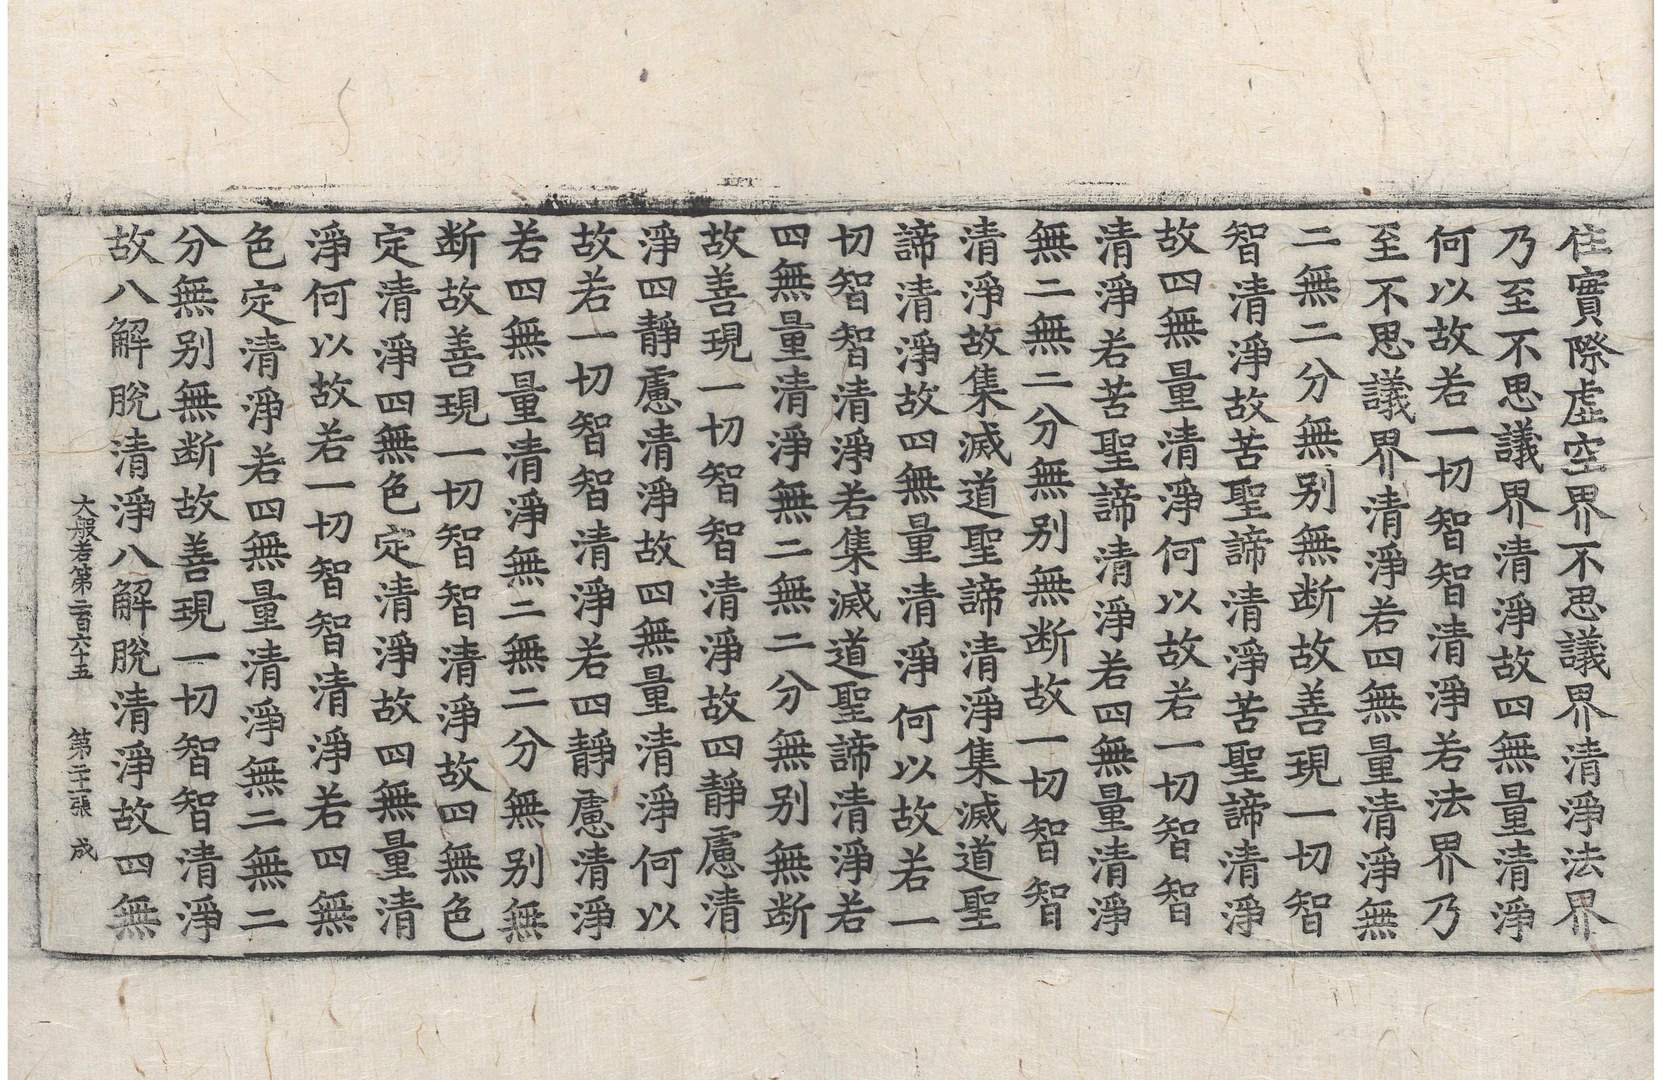 住實際虛空界不思議界清淨法界
乃至不思議界清淨故四無量清淨
何以故若一切智智清淨若法界乃
至不思議界清淨若四無量清淨無
二無二分無別無斷故善現一切智
智清淨故苦聖諦清淨苦聖諦清淨
故四無量清淨何以故若一切智智
清淨若苦聖諦清淨若四無量清淨
無二無二分無別無断故一切智智
清淨故集滅道聖諦清淨集滅道聖
諦清淨故四無量清淨何以故若一
切智智清淨若集滅道聖諦清淨若
四無量清淨無二無二分無別無断
故善現一切智智清淨故四靜慮清
淨四靜慮清淨故四無量清淨何以
故若一切智智清淨若四靜慮清淨
若四無量清淨無二無二分無別無
断故善現一切智智清淨故四無色
定清淨四無色定清淨故四無量清
淨何以故若一切智智清淨若四無
色定清淨若四無量清淨無二無二
分無別無断故善現一切智智清淨
故八解脫清淨八解脫清淨故四無
大般若第二百六十五 第二十一張 成